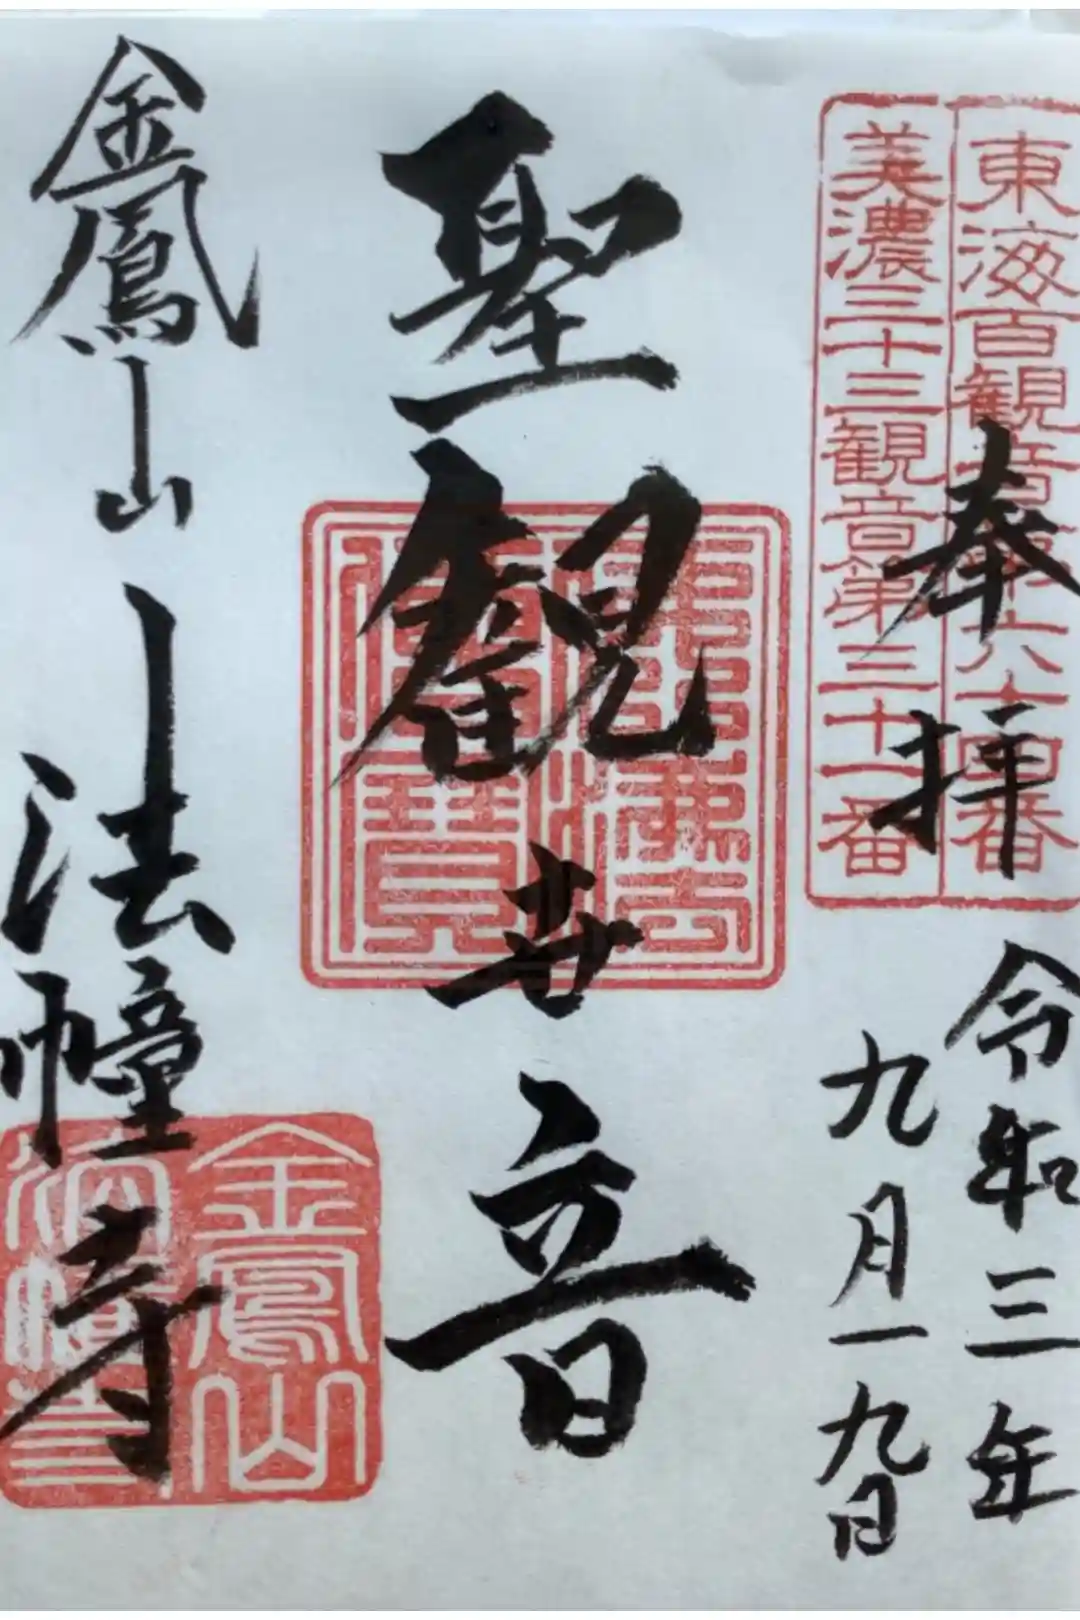 東海百観音第六十四番
美濃三十三観音第三十一番
奉拝
令和三年
九月一九日
聖観世音
金鳳山 法幢寺
金鳳山
法幢寺